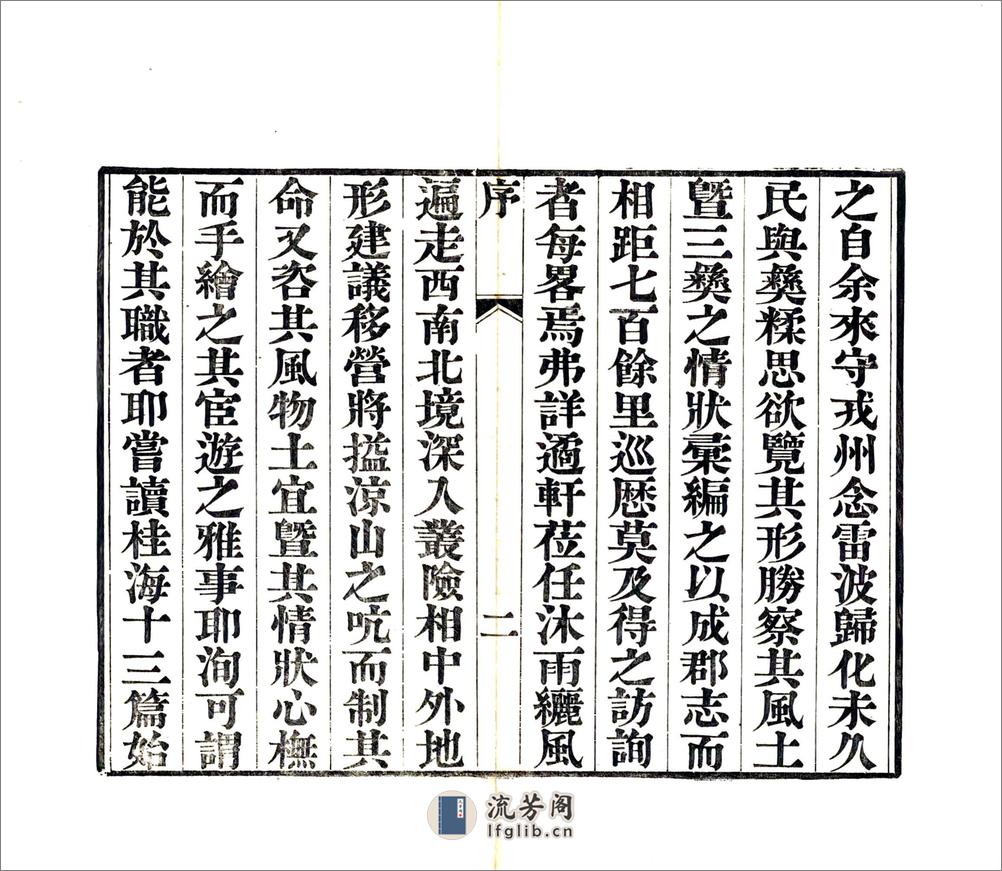 之自余來守戎州念雷波歸化未久
民與彝糅思欲覽其形勝察其風土
暨三彝之情狀彚編之以成郡志而
相距七百餘里巡歴莫及得之訪詢
者每畧焉弗詳適軒莅任沐雨纚風
序
二
遍走西南北境深入叢險相中外地
形建議移營將搤涼山之吭而制其
命又咨其風物土宜暨其情狀心橅
而手繪之其宦遊之雅事耶洵可謂
能於其職者耶嘗讀桂海十三篇始
流芳阁
lfglib.cn